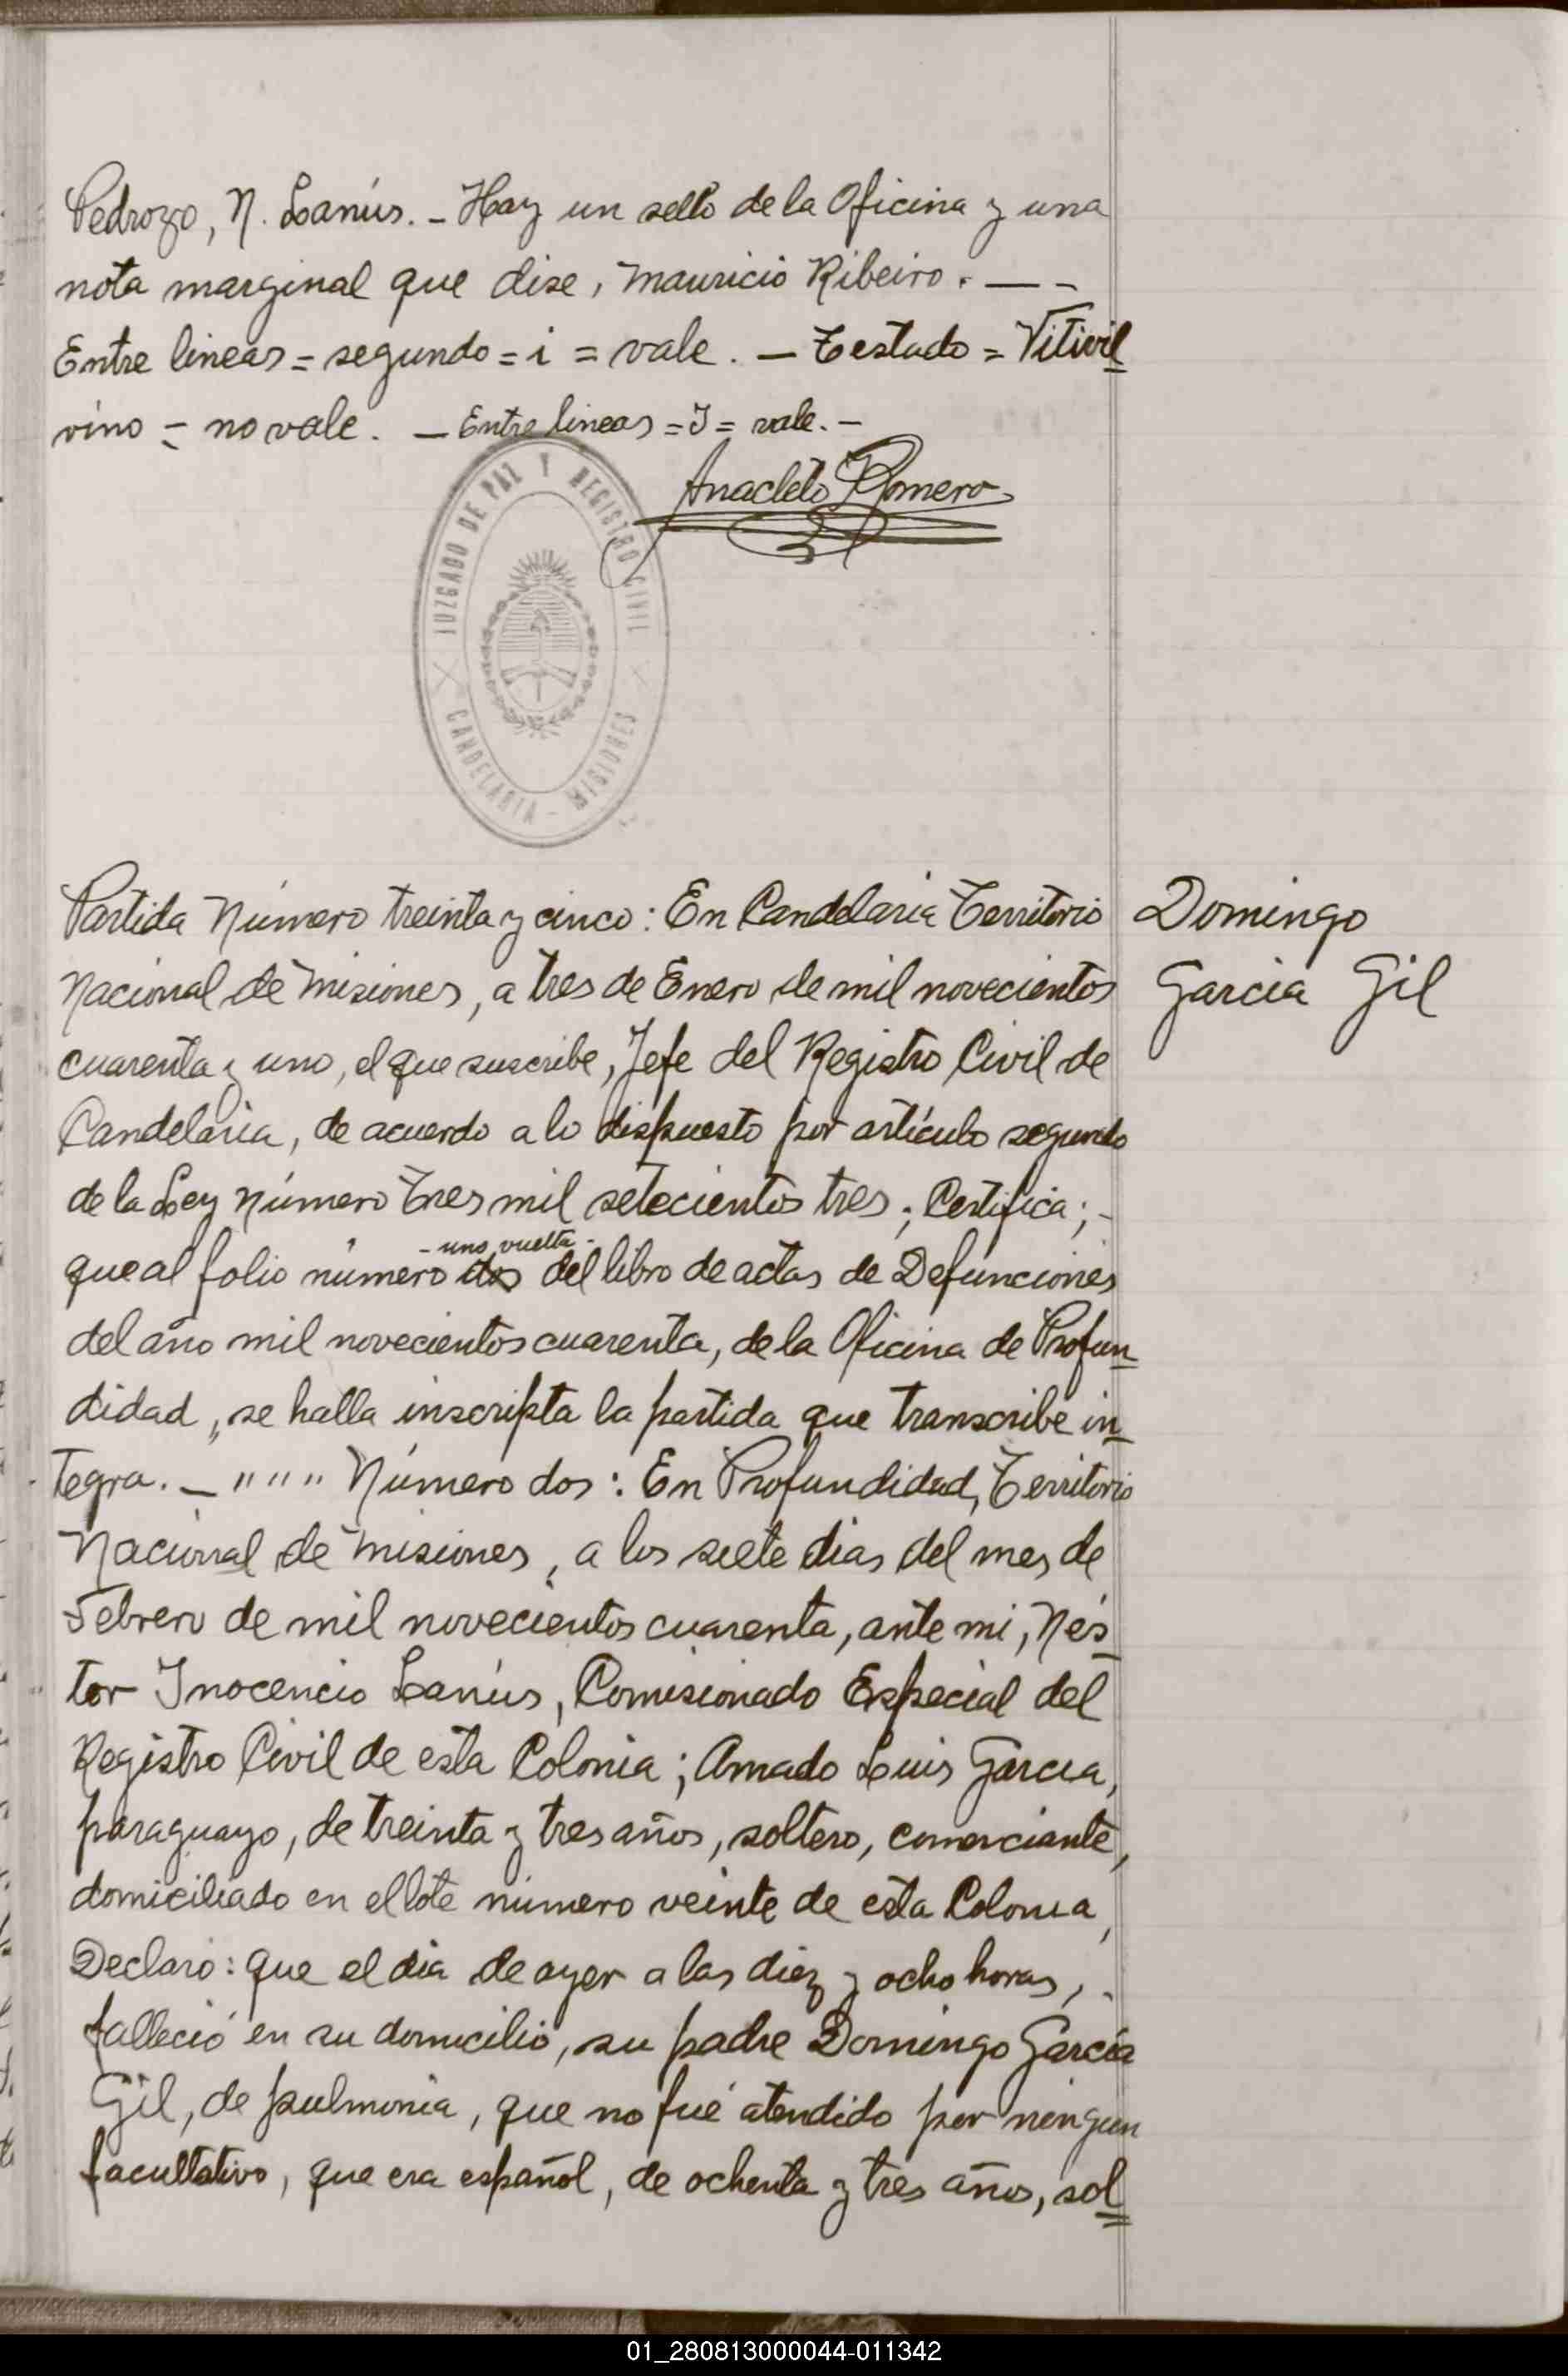 Pedrozo, N. Lanús. – Hay un sello de la Oficina y una
nota marginal que dise, Mauricio Ribeiro. — –
Entre lineas = segundo = i = vale. – Testado = Vitivil
vino = no vale. – Entre lineas = I = vale. –
Anacleto Romero
JUZGADO DE PAZ Y REGISTRO CIVIL
CANDELARIA - MISIONES
Partida Número treinta y cinco: En Candelaria Territorio
Domingo
Nacional de Misiones, a tres de Enero de mil novecientos
Garcia Gil
cuarenta y uno, el que suscribe, Jefe del Registro Civil de
Candelaria, de acuerdo a lo dispuesto por artículo segundo
de la Ley número tres mil setecientos tres; Certifica; -
- uno vuelta -
que al folio número dos del libro de actas de Defunciones
del año mil novecientos cuarenta, de la Oficina de Profun
didad, se halla inscripta la partida que transcribe in
tegra. – " " " Número dos: En Profundidad, Territorio
Nacional de Misiones, a los siete dias del mes de
Febrero de mil novecientos cuarenta, ante mi, Nés
tor Inocencio Lanús, Comisionado Especial del
Registro Civil de esta Colonia; Amado Luis Garcia,
paraguayo, de treinta y tres años, soltero, comerciante,
domiciliado en el lote número veinte de esta Colonia,
Declaró: que el dia de ayer a las diez y ocho horas, -
falleció en su domicilio, su padre Domingo García
Gil, de pulmonia, que no fué atendido por ningun
facultativo, que era español, de ochenta y tres años, sol
01_280813000044-011342